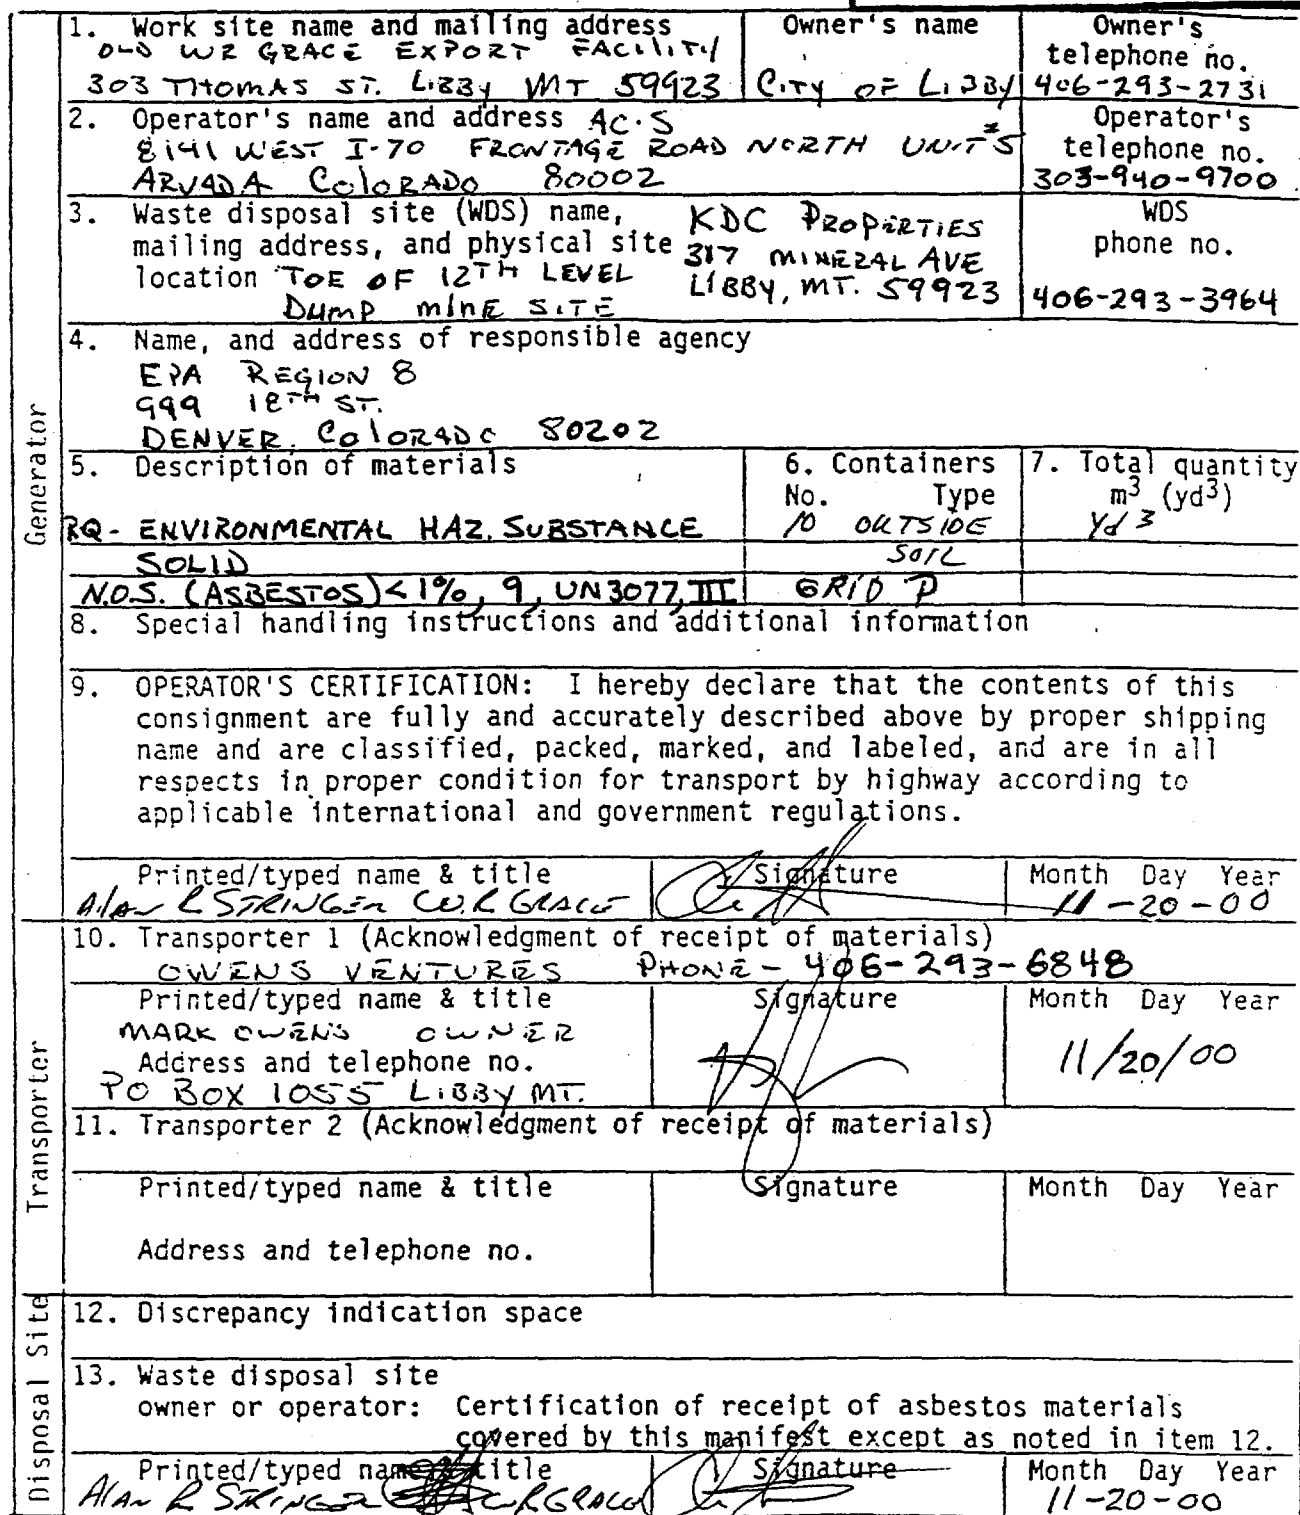 1. Work site name and mailing address
OLD WR GRACE EXPORT FACILITY
303 THOMAS ST. LIBBY MT 59923
Owner's name
CITY OF LIBBY
Owner's
telephone no.
406-293-2731
2. Operator's name and address AC.S
8141 WEST I-70 FRONTAGE ROAD NORTH UNIT #5
ARVADA COLORADO 80002
Operator's
telephone no.
303-940-9700
3. Waste disposal site (WDS) name,
mailing address, and physical site
location TOE OF 12TH LEVEL
DUMP MINE SITE
KDC PROPERTIES
317 MINERAL AVE
LIBBY, MT. 59923
WDS
phone no.
406-293-3964
4. Name, and address of responsible agency
EPA REGION 8
999 18TH ST.
DENVER, COLORADO 80202
Generator
5. Description of materials
RQ- ENVIRONMENTAL HAZ. SUBSTANCE
SOLID
N.O.S. (ASBESTOS) <1%, 9, UN3077, III
6. Containers
No. Type
10 OUTSIDE
SOIL
GRID P
7. Total quantity
m3 (yd3)
Yd3
8. Special handling instructions and additional information
9. OPERATOR'S CERTIFICATION: I hereby declare that the contents of this
consignment are fully and accurately described above by proper shipping
name and are classified, packed, marked, and labeled, and are in all
respects in proper condition for transport by highway according to
applicable international and government regulations.
Printed/typed name & title
Alan R STRINGER W.R GRACE
Signature
Month Day Year
11-20-00
Transporter
10. Transporter 1 (Acknowledgment of receipt of materials)
OWENS VENTURES PHONE - 406-293-6848
Printed/typed name & title
MARK OWENS OWNER
Address and telephone no.
PO BOX 1055 LIBBY MT.
Signature
Month Day Year
11/20/00
11. Transporter 2 (Acknowledgment of receipt of materials)
Printed/typed name & title
Signature
Month Day Year
Address and telephone no.
Disposal Site
12. Discrepancy indication space
13. Waste disposal site
owner or operator: Certification of receipt of asbestos materials
covered by this manifest except as noted in item 12.
Printed/typed name & title
Alan R STRINGER W R GRACE
Signature
Month Day Year
11-20-00